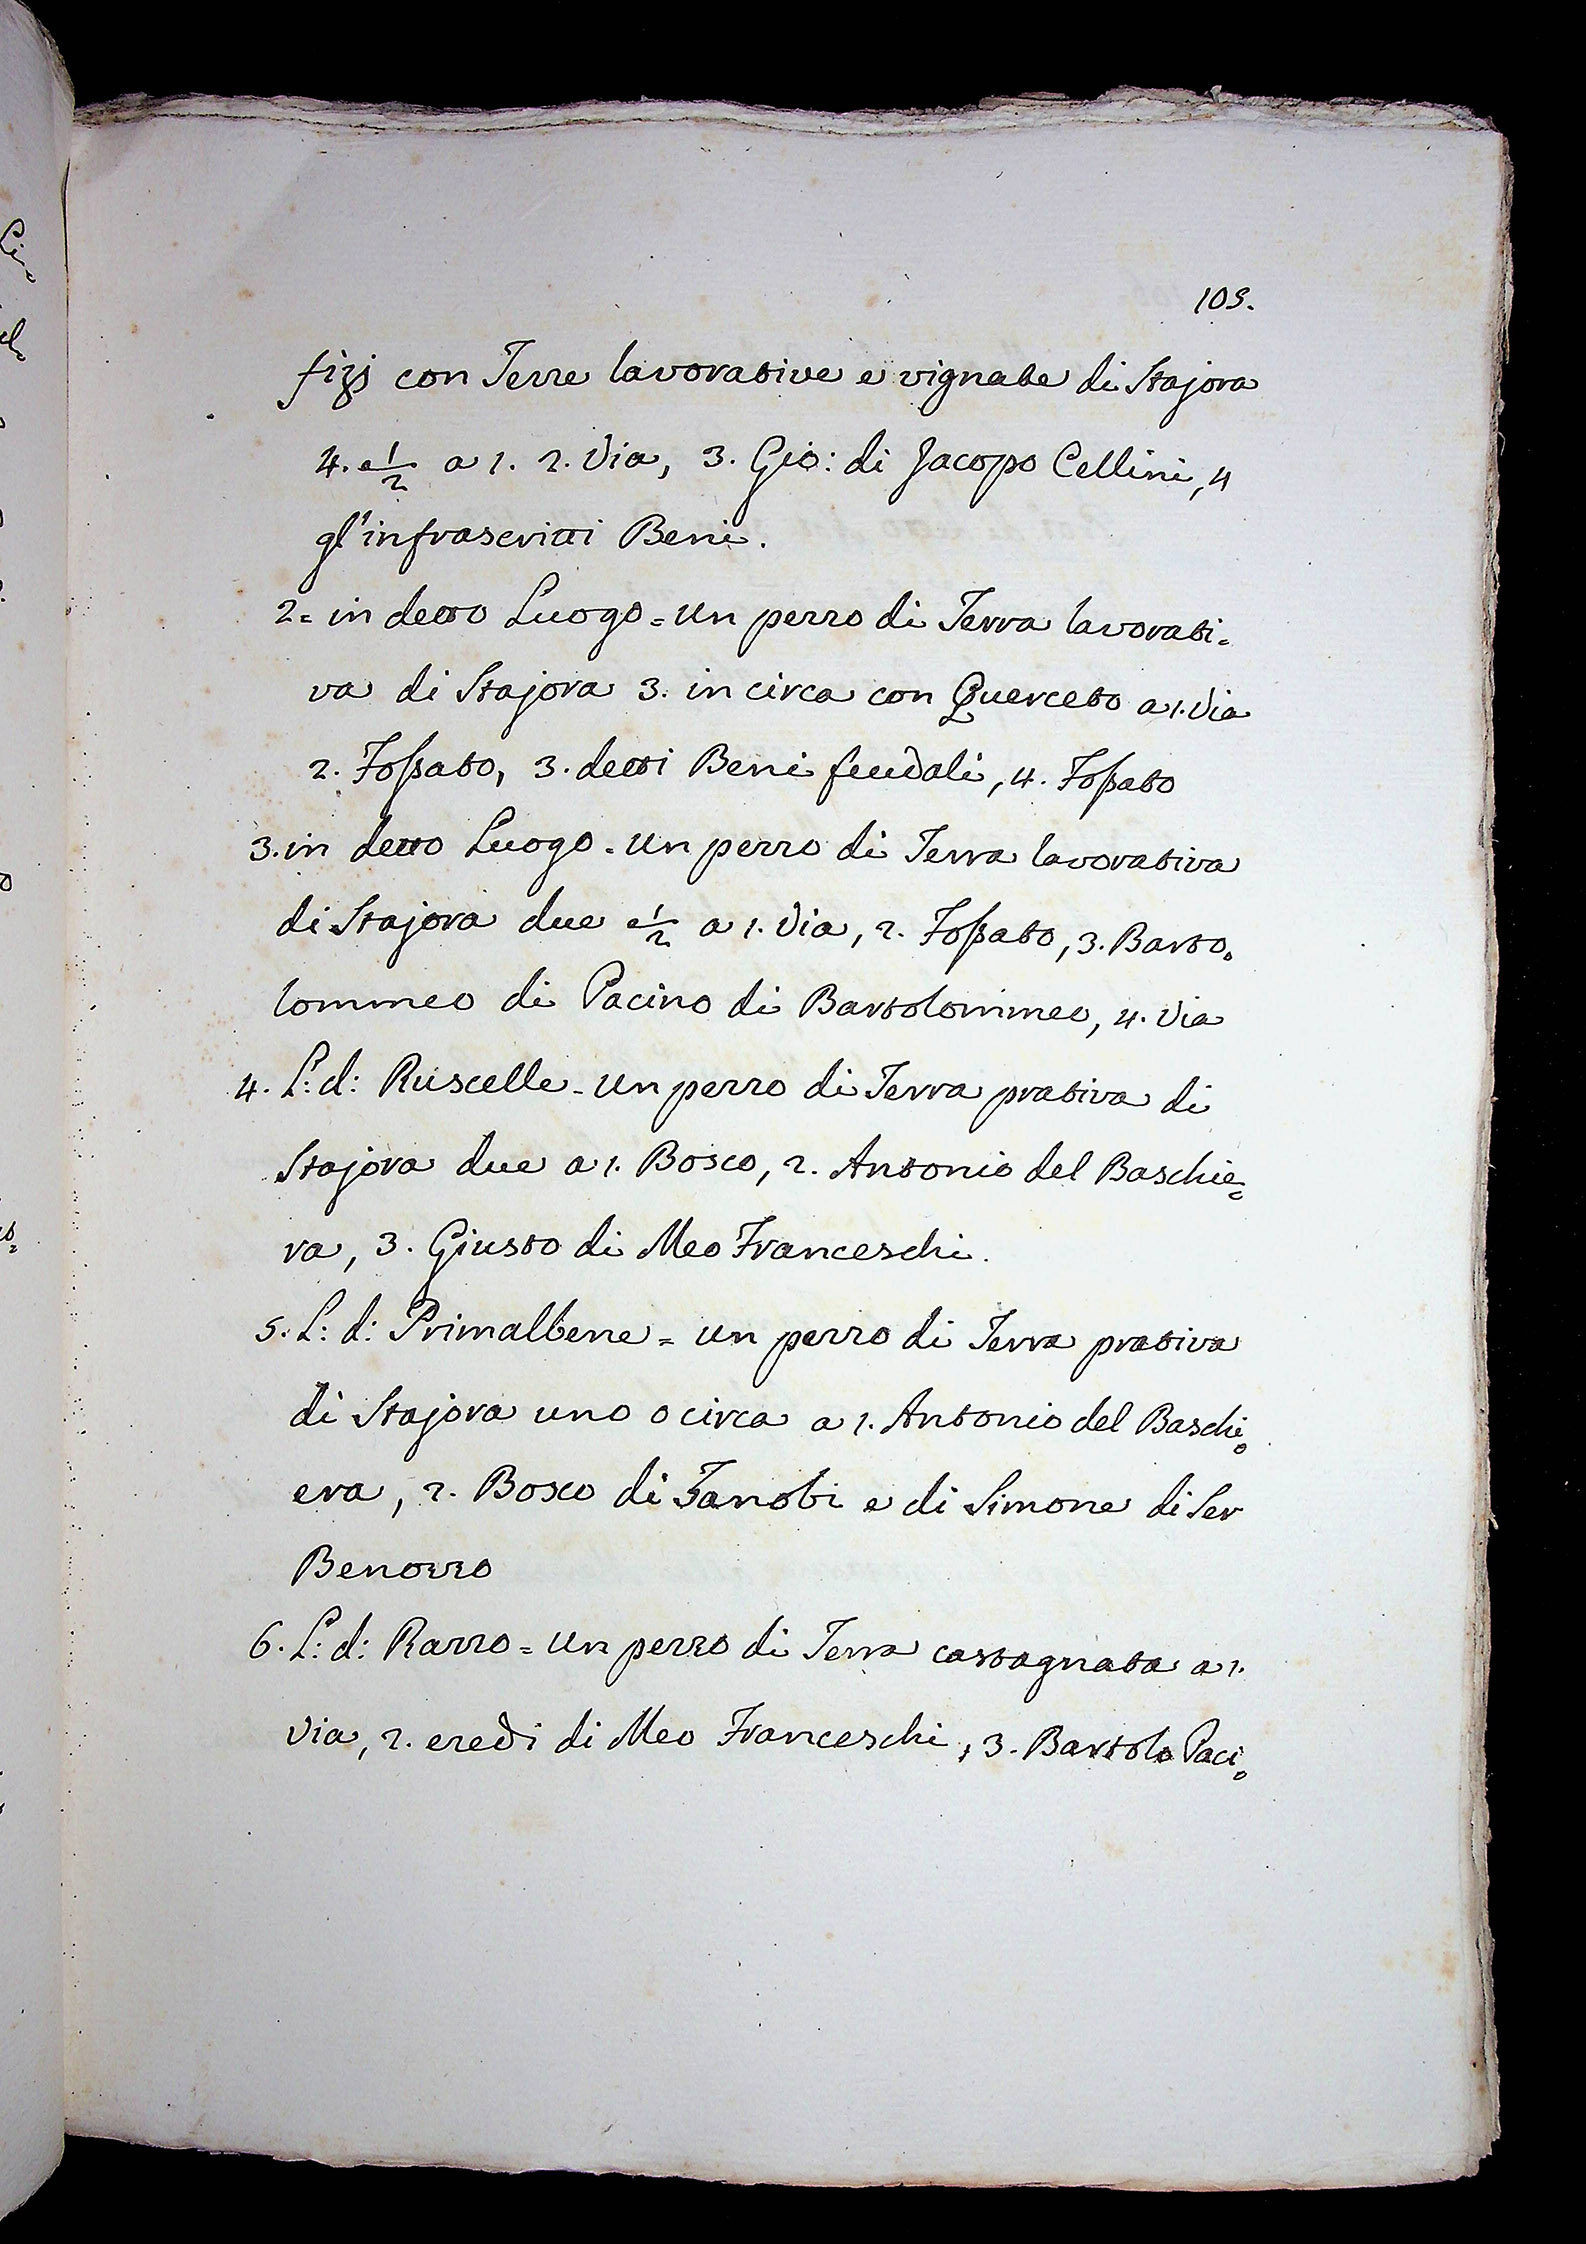 103.
fizj con Terre lavorative e vignate di Stajora
4. e 1/2 a 1. 2. Via, 3. Gio: di Jacopo Cellini, 4
gl'infrascritti Beni.
2= in detto Luogo = un pezzo di Terra lavorati=
va di Stajora 3. in circa con Querceto a 1. Via
2. Foßato, 3. detti Beni feudali, 4. Foßato
3. in detto Luogo = un pezzo di Terra lavorativa
di Stajora due e 1/2 a 1. Via, 2. Foßato, 3. Barto=
lommeo di Pacino di Bartolommeo, 4. Via
4. L: d: Ruscelle = un pezzo di Terra prativa di
Stajora due a 1. Bosco, 2. Antonio del Baschie=
ra, 3. Giusto di Meo Franceschi.
5. L: d: Primalbene = un pezzo di Terra prativa
di Stajora uno o circa a 1. Antonio del Baschi=
era, 2. Bosco di Zanobi e di Simone di Ser
Benozzo
6. L: d: Razzo = un pezzo di Terra castagnata a 1.
Via, 2. eredi di Meo Franceschi, 3. Bartolo Paci=